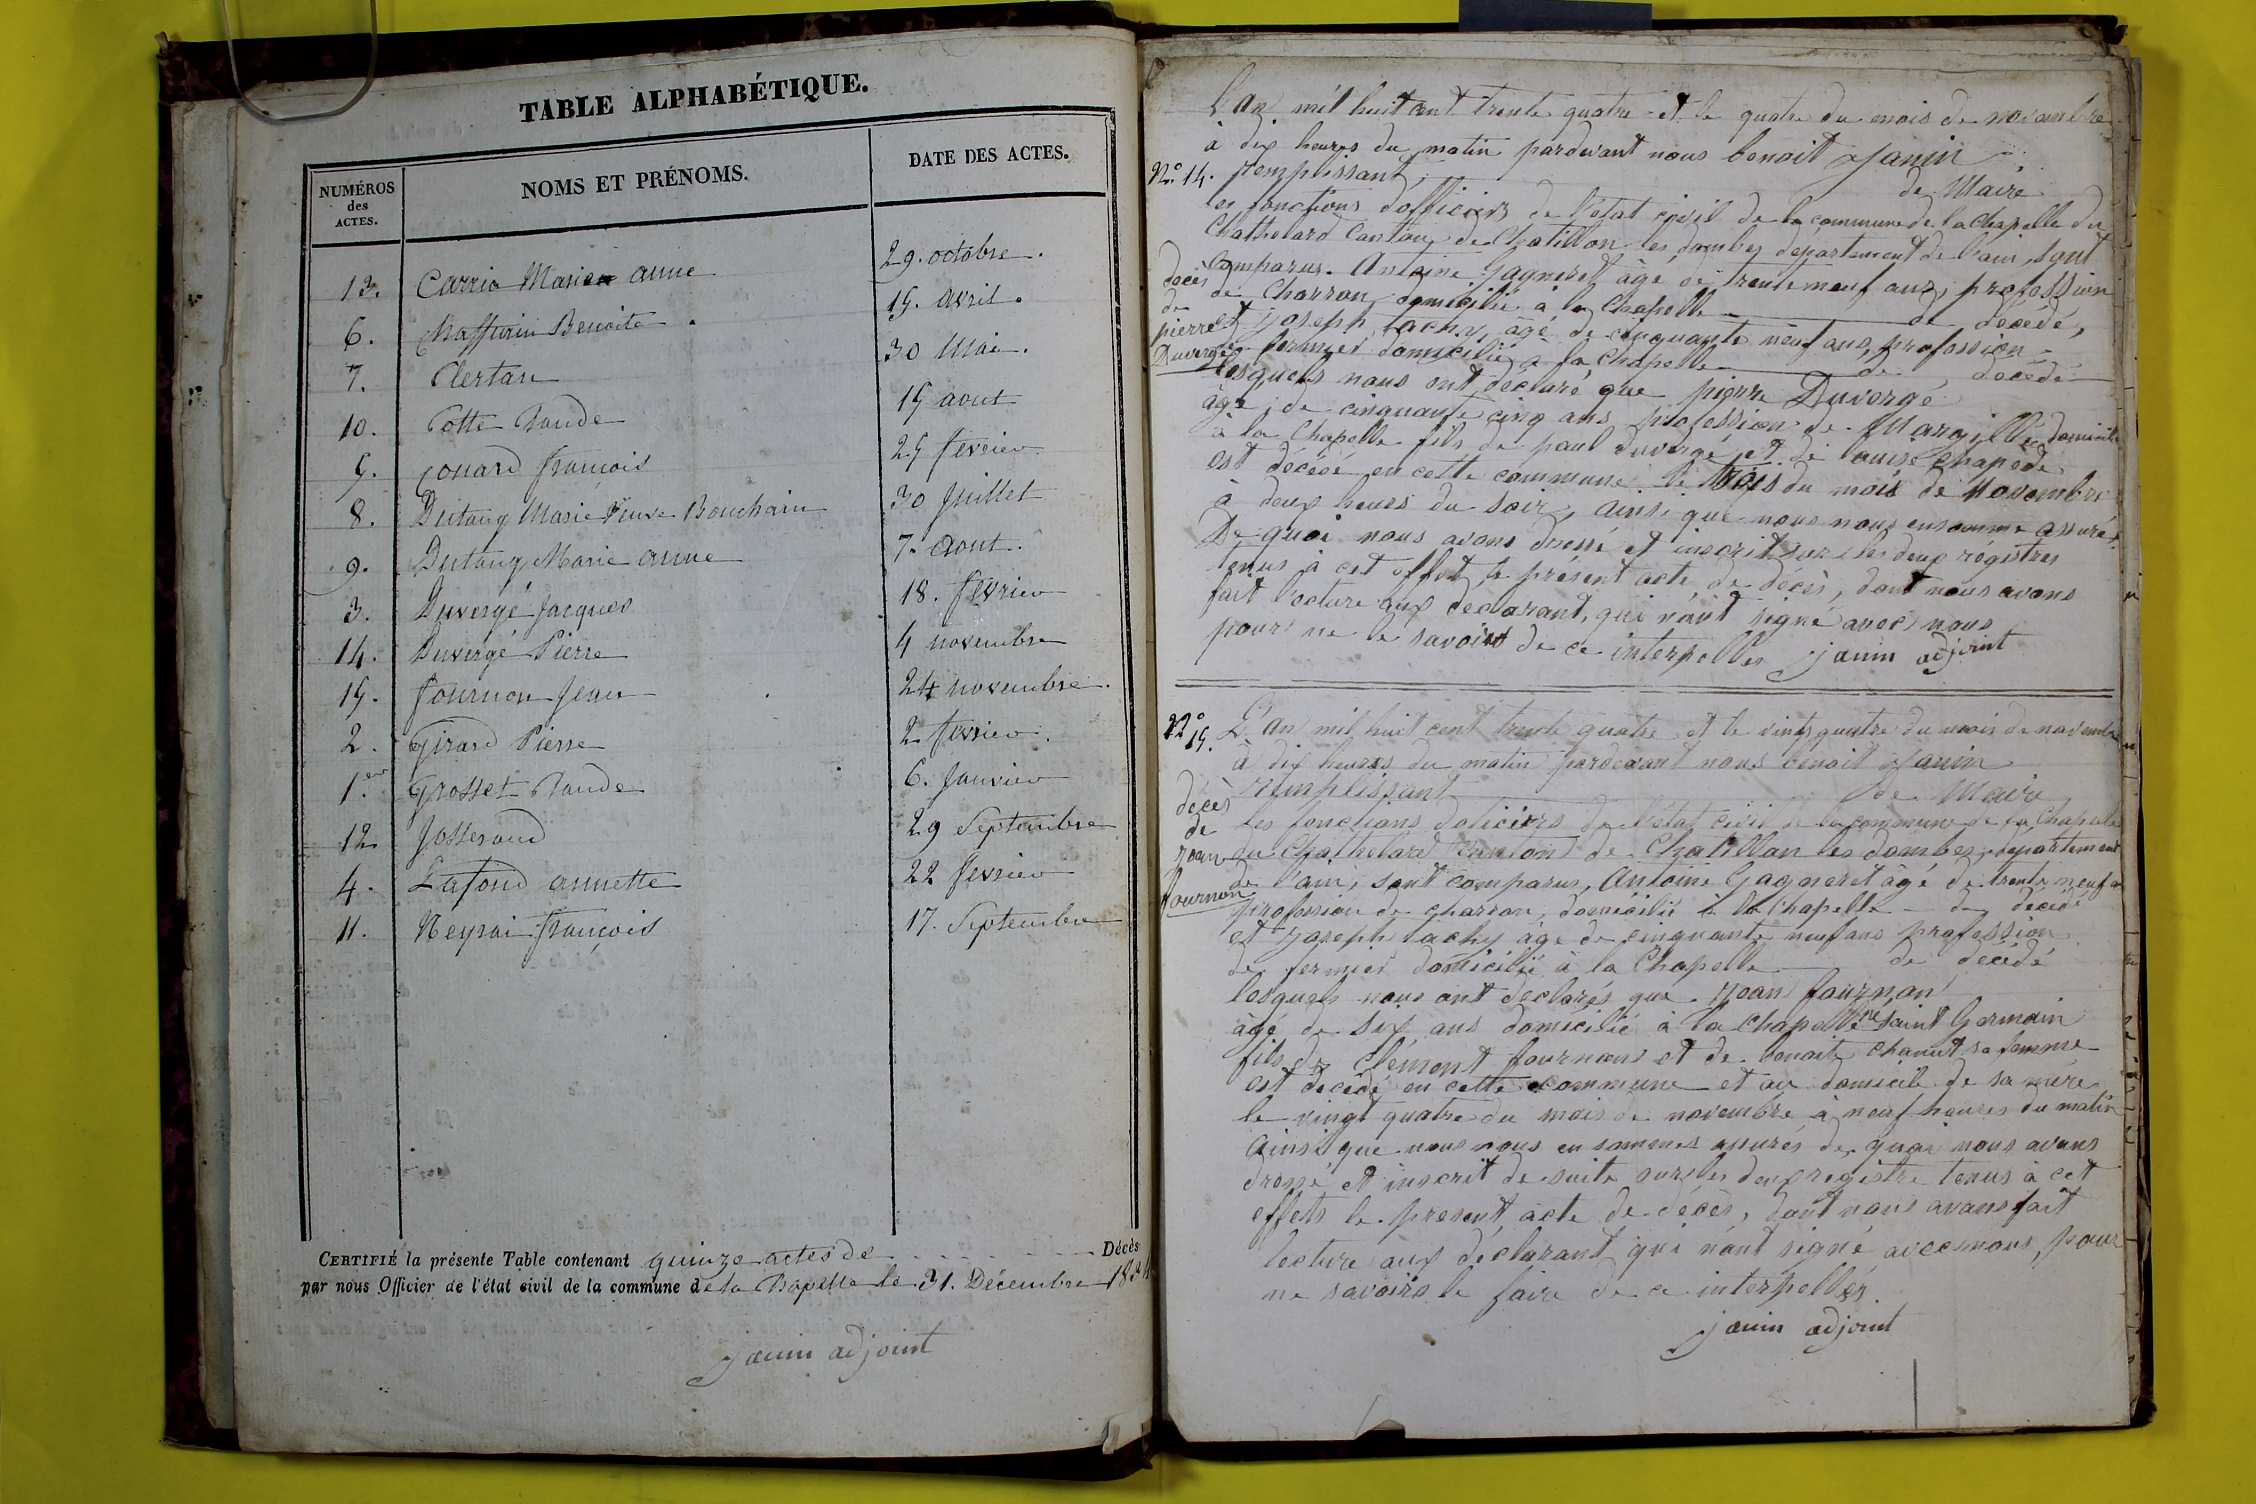 TABLE ALPHABÉTIQUE.
NUMÉROS des ACTES.
NOMS ET PRÉNOMS.
DATE DES ACTES.
13. Carrio Marie anne 29. octobre.
6. Benoite. 15. avril.
7. Clertan 30 Mai.
10. Cotte Claude 15 aout
5. Couard françois 25 fevrier
8. Dutang Marie Veuve Bouchain 30 Juillet
9. Dutang Marie anne 7. aout.
3. Duvergé Jacques 18. fevrier
14. Duvergé Pierre 4 novembre
15. fournon Jean 24 novembre.
2. Girard Pierre 2 fevrier.
1.er Grosset Claude 6. Janvier
12 Josserand 29 Septembre
4. Lafond annette 22 fevrier
11. Neyrai françois 17. Septembre
CERTIFIÉ la présente Table contenant quinze actes de Décès
par nous Officier de l'état civil de la commune de la Chapelle le 31. Décembre 1834
janin adjoint
L'an mil huit cent trente quatre et le quatre du mois de novembre
à dix heures du matin pardevant nous benoit Janin
N.º 14. remplissant de Maire
les fonctions d'officiers de l'état civil de la commune de la Chapelle du
Chathelard Canton de Chatillon les dombes departement de l'ain, sont
comparus. Antoine Gagneret âge de trenteneuf ans, profession
décès de pierre Duvergé
de Charron domicilié à la Chapelle de décédé,
et Joseph lachy, âgé de cinquante neuf ans, profession
de fermier domicilié a la Chapelle de décédé
lesquels nous ont déclaré que pierre Duvergé
âgé de cinquante cinq ans profession de Margillé domicilié
à la Chapelle fils de paul duvergé et de louise Chapède
est décédé en cette commune le trois du mois de Novembre
à deux heures du soir, ainsi que nous nous en somme assurés.
De quoi nous avons dressé et inscrit sur les deux régistres
tenus à cet effet le présent acte, de décès, dont nous avons
fait lecture aux declarant, qui n'ont signé avec nous
pour ne le savoir de ce interpelles janin adjoint
N.º 15. L'an mil huit cent trente quatre et le vint quatre du mois de novembre
à dix heures du matin pardevant nous benoit Janin
remplissant de Maire
décès de Jean fournon
les fonctions de l'état civil de la commune de la Chapelle
du Chathelard canton de Chatillon les dombes, departement
de l'ain, sont comparus, Antoine Gagneret âgé de trente neuf
profession de charron, domicilié à la chapelle de décédé
et Joseph lachy âgé de cinquante neuf ans profession
de fermier domicilié à la Chapelle de décédé
lesquels nous ont declarés que Jean fournon
âgé de six ans domicilié à la chapelle saint Germain
fils de Clément fournon et de benoite chanut sa femme
est decédé en cette commune et au domicile de sa mere
le vingt quatre du mois de novembre à neuf heures du matin
ainsi que nous nous en sommes assurés de quoi nous avons
dressé et inscrit de suite sur les deux registre tenus à cet
effets le present acte de décès, dont nous avons fait
lecture aux déclarant qui n'ont signé avec nous, pour
ne savoire le faire de ce interpellés.
janin adjoint